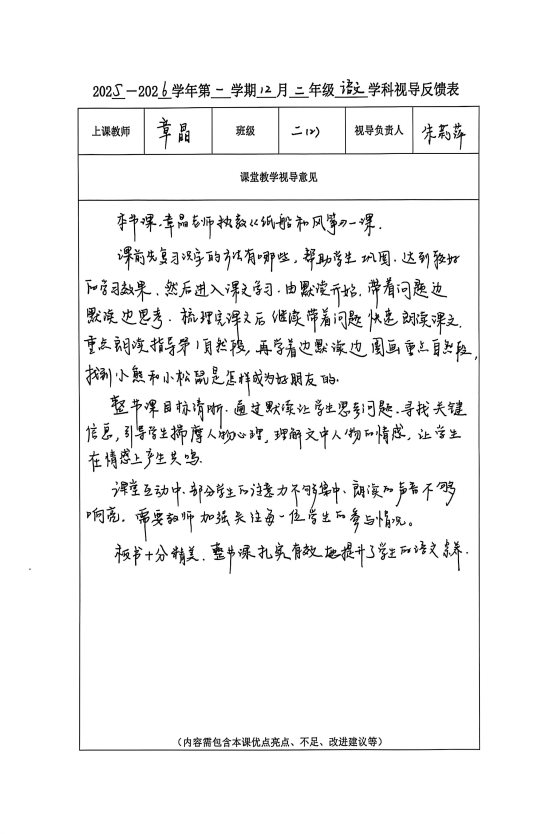 2025-2026学年第一学期12月二年级语文学科视导反馈表
上课教师 章晶 班级 二(2) 视导负责人 朱菊萍
课堂教学视导意见
本节课,章晶老师执教《纸船和风筝》一课.
课前先复习识字的方法有哪些,帮助学生巩固.达到较好
的学习效果、然后进入课文学习.由默读开始,带着问题边
默读边思考.梳理完课文后继续带着问题快速朗读课文.
重点朗读指导第1自然段,再学着边默读边圈画重点自然段,
找到小熊和小松鼠是怎样成为好朋友的.
整节课目标清晰.通过默读让学生思考问题、寻找关键
信息,引导学生揣摩人物心理,理解文中人物的情感,让学生
在情感上产生共鸣.
课堂互动中,部分学生的注意力不够集中、朗读的声音不够
响亮,需要教师加强关注每一位学生的参与情况。
板书十分精美.整节课扎实有效地提升了学生的语文素养.
(内容需包含本课优点亮点、不足、改进建议等)